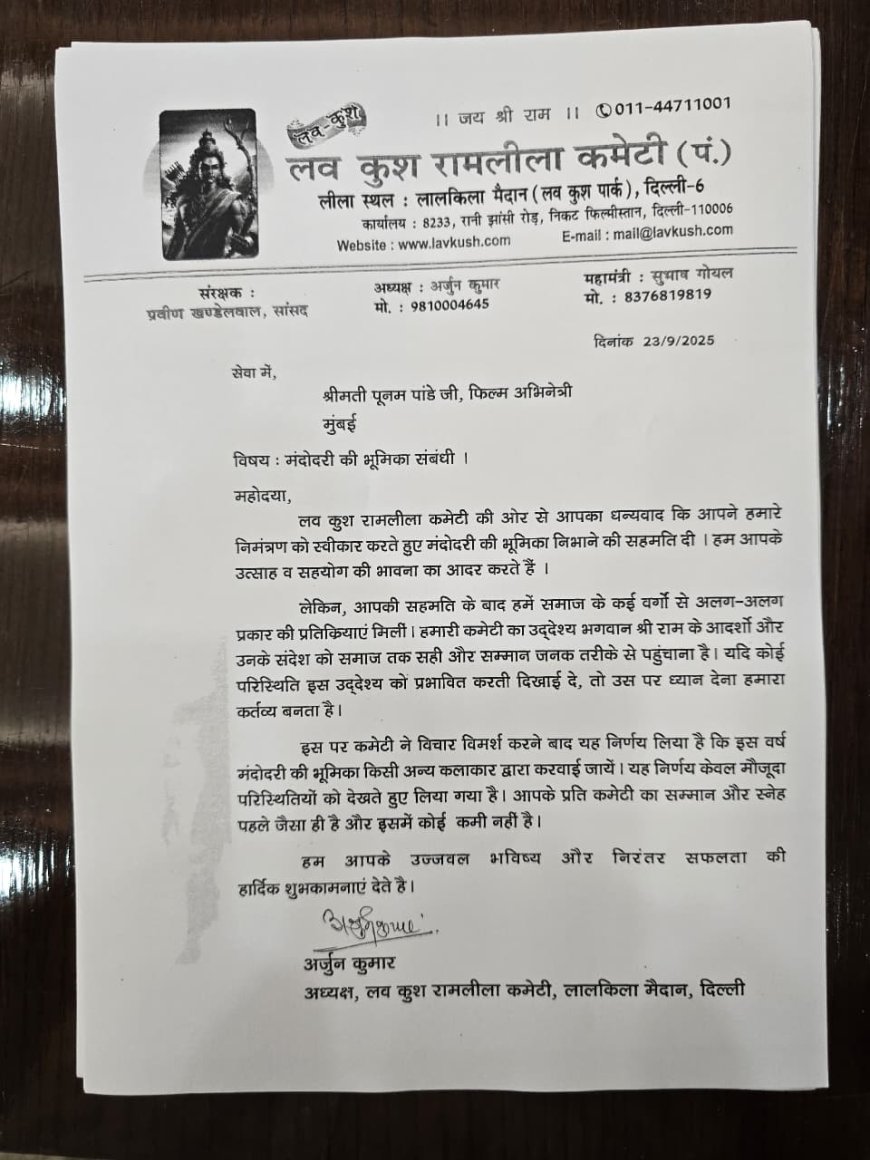 लव-कुश
।। जय श्री राम ।। 011-44711001
लव कुश रामलीला कमेटी (पं.)
लीला स्थल : लालकिला मैदान (लव कुश पार्क), दिल्ली-6
कार्यालय : 8233, रानी झांसी रोड़, निकट फिल्मीस्तान, दिल्ली-110006
Website : www.lavkush.com E-mail : mail@lavkush.com
संरक्षक :
प्रवीण खण्डेलवाल, सांसद
अध्यक्ष : अर्जुन कुमार
मो. : 9810004645
महामंत्री : सुभाष गोयल
मो. : 8376819819
दिनांक 23/9/2025
सेवा में,
श्रीमती पूनम पांडे जी, फिल्म अभिनेत्री
मुंबई
विषय : मंदोदरी की भूमिका संबंधी ।
महोदया,
लव कुश रामलीला कमेटी की ओर से आपका धन्यवाद कि आपने हमारे
निमंत्रण को स्वीकार करते हुए मंदोदरी की भूमिका निभाने की सहमति दी । हम आपके
उत्साह व सहयोग की भावना का आदर करते हैं ।
लेकिन, आपकी सहमति के बाद हमें समाज के कई वर्गो से अलग-अलग
प्रकार की प्रतिक्रियाएं मिलीं। हमारी कमेटी का उद्देश्य भगवान श्री राम के आदर्शो और
उनके संदेश को समाज तक सही और सम्मान जनक तरीके से पहुंचाना है। यदि कोई
परिस्थिति इस उद्देश्य कों प्रभावित करती दिखाई दे, तो उस पर ध्यान देना हमारा
कर्तव्य बनता है।
इस पर कमेटी ने विचार विमर्श करने बाद यह निर्णय लिया है कि इस वर्ष
मंदोदरी की भूमिका किसी अन्य कलाकार द्वारा करवाई जायें। यह निर्णय केवल मौजूदा
परिस्थितियों को देखते हुए लिया गया है। आपके प्रति कमेटी का सम्मान और स्नेह
पहले जैसा ही है और इसमें कोई कमी नहीं है।
हम आपके उज्जवल भविष्य और निरंतर सफलता की
हार्दिक शुभकामनाएं देते है।
अर्जुन कुमार
अध्यक्ष, लव कुश रामलीला कमेटी, लालकिला मैदान, दिल्ली